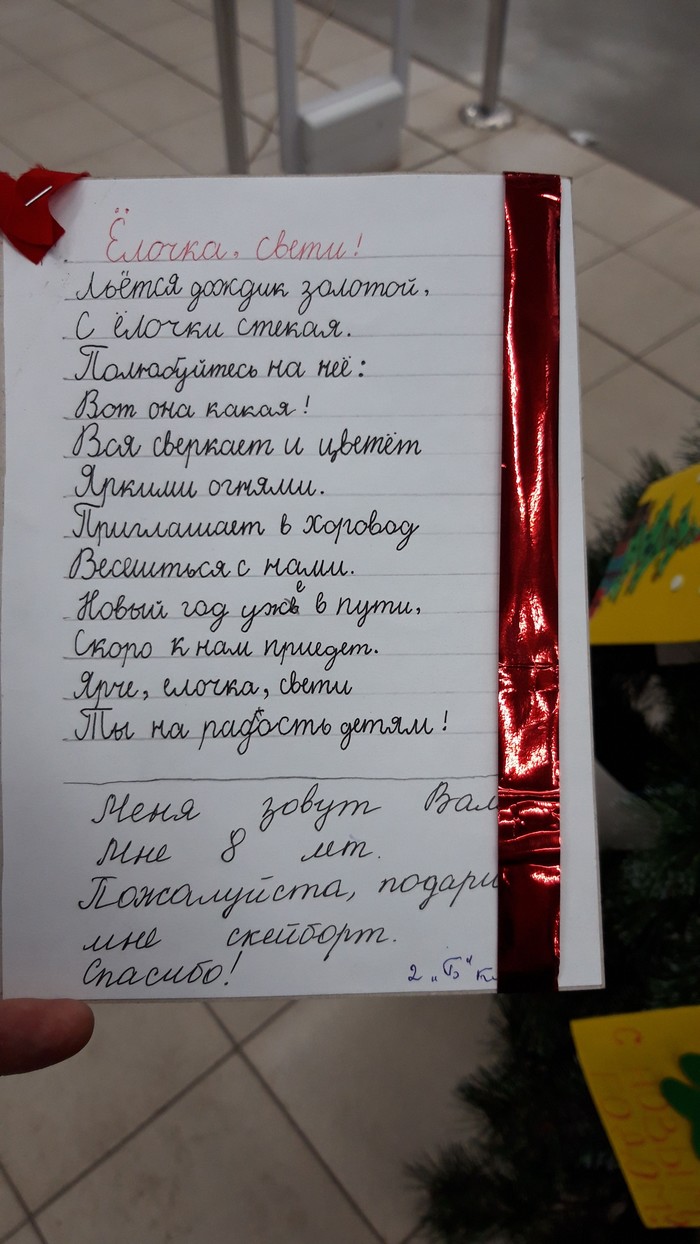 Ёлочка, свети!
Льётся дождик золотой,
С ёлочки стекая.
Полюбуйтесь на неё:
Вот она какая!
Вся сверкает и цветёт
Яркими огнями.
Приглашает в хоровод
Веселиться с нами.
Новый год уже в пути,
Скоро к нам приедет.
Ярче, елочка, свети
Ты на радость детям!
Меня зовут
Мне 8 лет.
Пожалуйста, подари
мне скейборт.
Спасибо!
2 „Б"